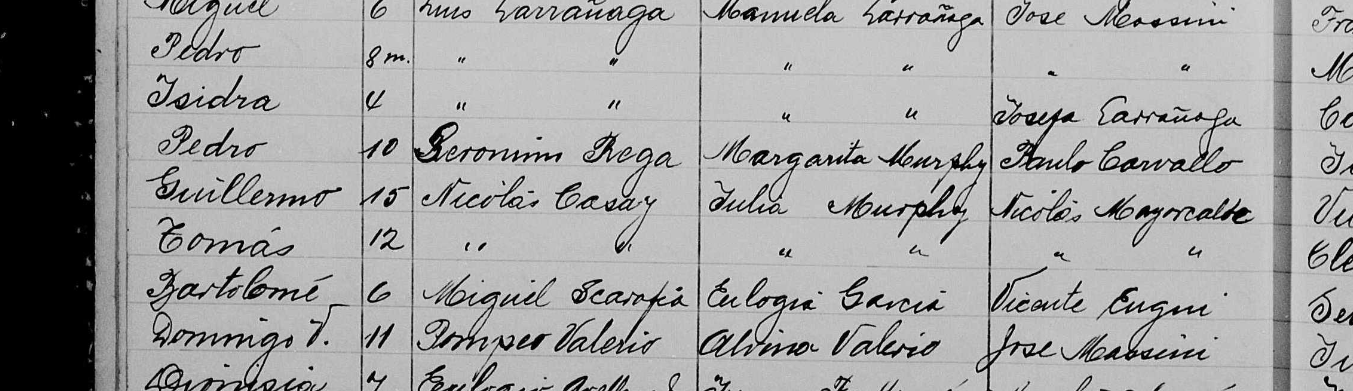 Miguel 6 Luis Larrañaga Manuela Larrañaga Jose Massini
Pedro 8 m. " " " " " "
Isidra 4 " " " " Josefa Larrañaga
Pedro 10 Geronimo Rega Margarita Murphy Paulo Carvallo
Guillermo 15 Nicolás Casay Julia Murphy Nicolás Mayorcalde
Tomás 12 " " " " " "
Bartolomé 6 Miguel Scarafia Eulogia Garcia Vicente Eugui
Domingo V. 11 Pompeo Valerio Alvina Valerio Jose Massini
Dionisia 7 Eulogio